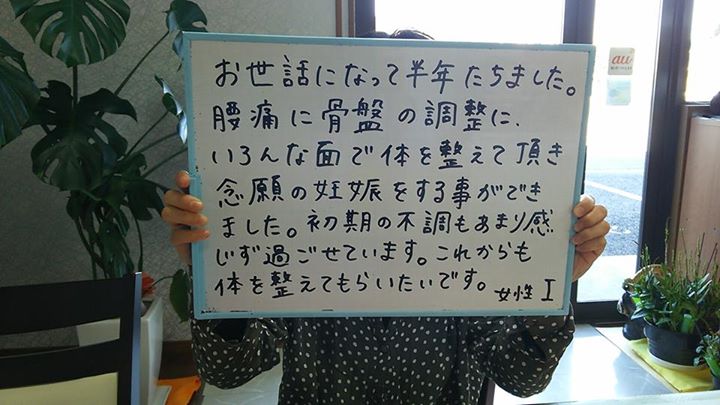 お世話になって半年たちました。
腰痛に骨盤の調整に、
いろんな面で体を整えて頂き
念願の妊娠をする事ができ
ました。初期の不調もあまり感
じず過ごせています。これからも
体を整えてもらいたいです。 女性 I
au